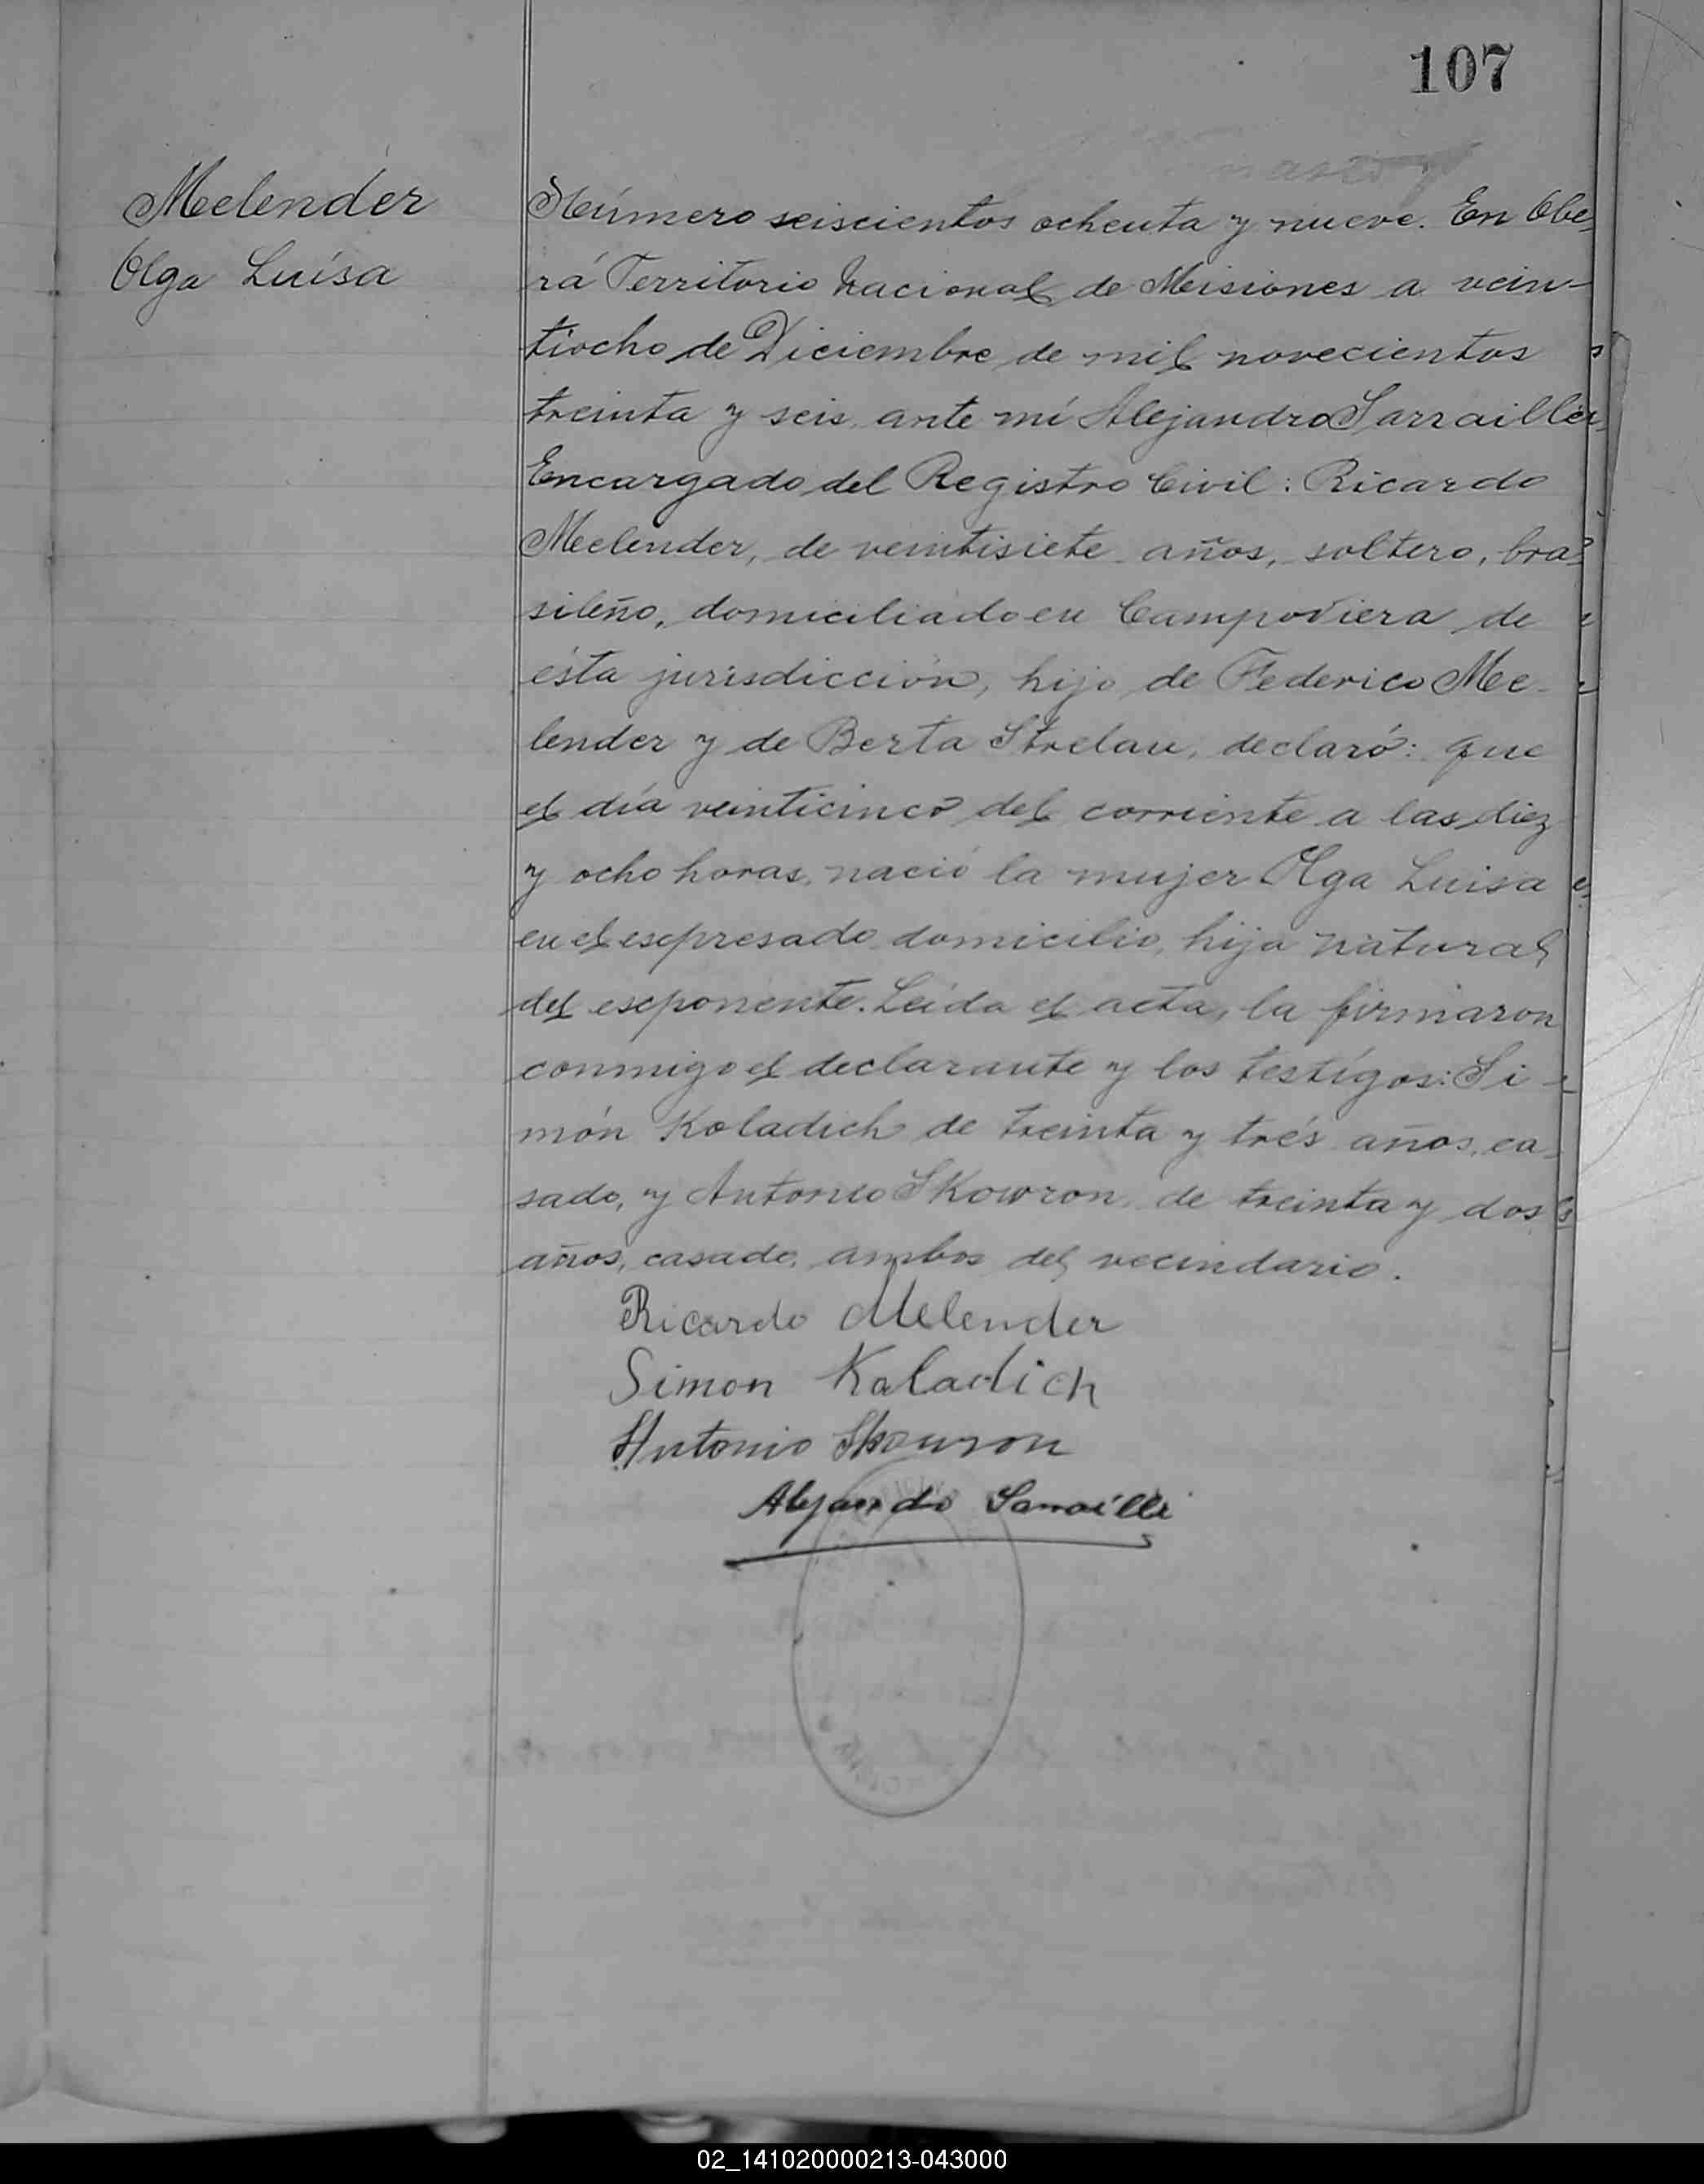 107
Melender
Olga Luísa
Número seiscientos ochenta y nueve. En Obe-
rá Territorio Nacional de Misiones a vein-
tiocho de Diciembre de mil novecientos
treinta y seis, ante mí Alejandro Sarraillér,
Encargado del Registro Civil: Ricardo
Melender, de veintisiete años, soltero, bra-
sileño, domiciliado en Campo Viera de
ésta jurisdicción, hijo de Federico Me-
lender y de Berta Strelau, declaró: que
el día veinticinco del corriente a las diez
y ocho horas, nació la mujer Olga Luisa
en el esepresado domicilio, hija natural
del eseponente. Leída el acta, la firmaron
conmigo el declarante y los testígos: Si-
món Koladich de treinta y trés años, ca-
sado, y Antonio Skowron, de treinta y dos
años, casado, ambos del vecindario.
Ricardo Melender
Simon Kaladich
Antonio Skowron
Alejandro Sarraillé
02_141020000213-043000